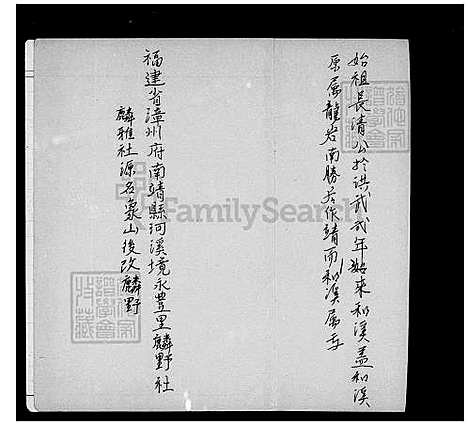 始祖長清公於洪武弍年始來和溪盖和溪
原属龍岩南勝后作靖而和溪属于
福建省漳州府南靖縣河溪境永豊里麟野社
麟雅社源名象山後改麟野
FamilySearch